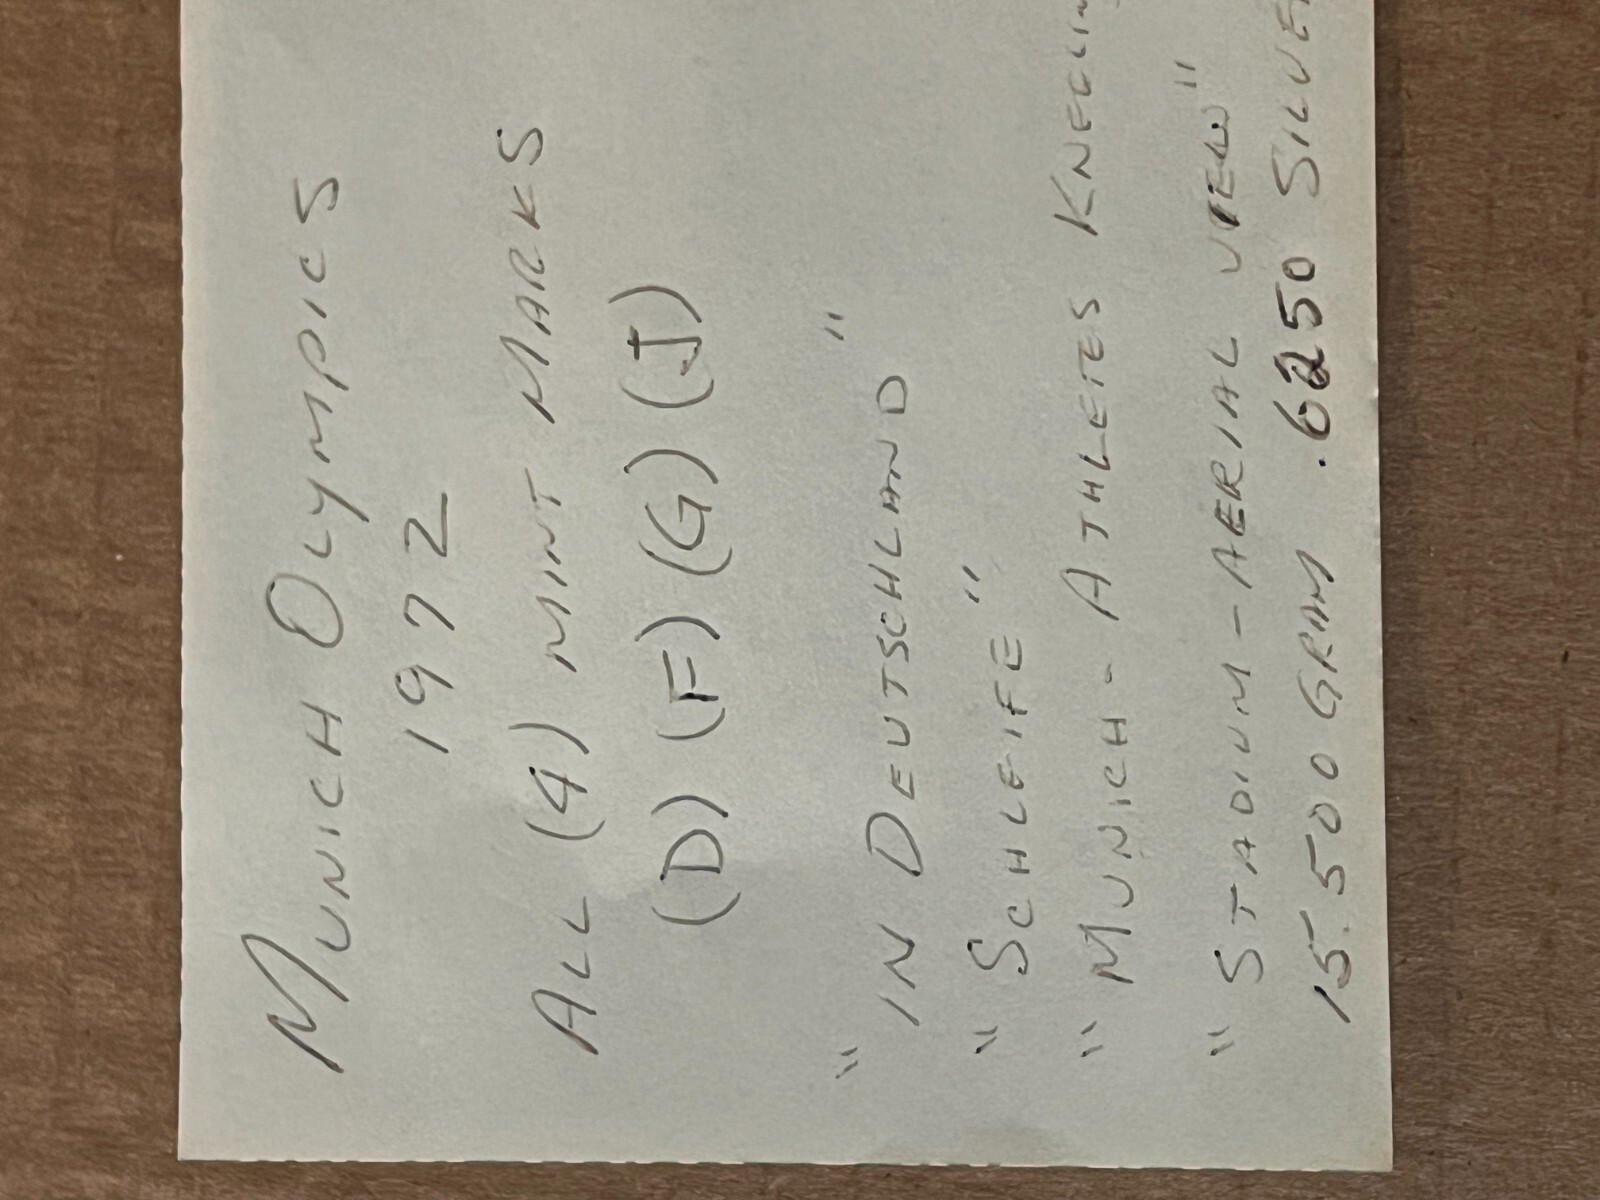 MUNICH OLYMPICS
1972
ALL (4) MINT MARKS
(D) (F) (G) (J)
"IN DEUTSCHLAND"
"SCHLEIFE"
"MUNICH - ATHLETES KNEELIN
"STADIUM - AERIAL VIEW"
15.500 GRAM .6250 SILVE